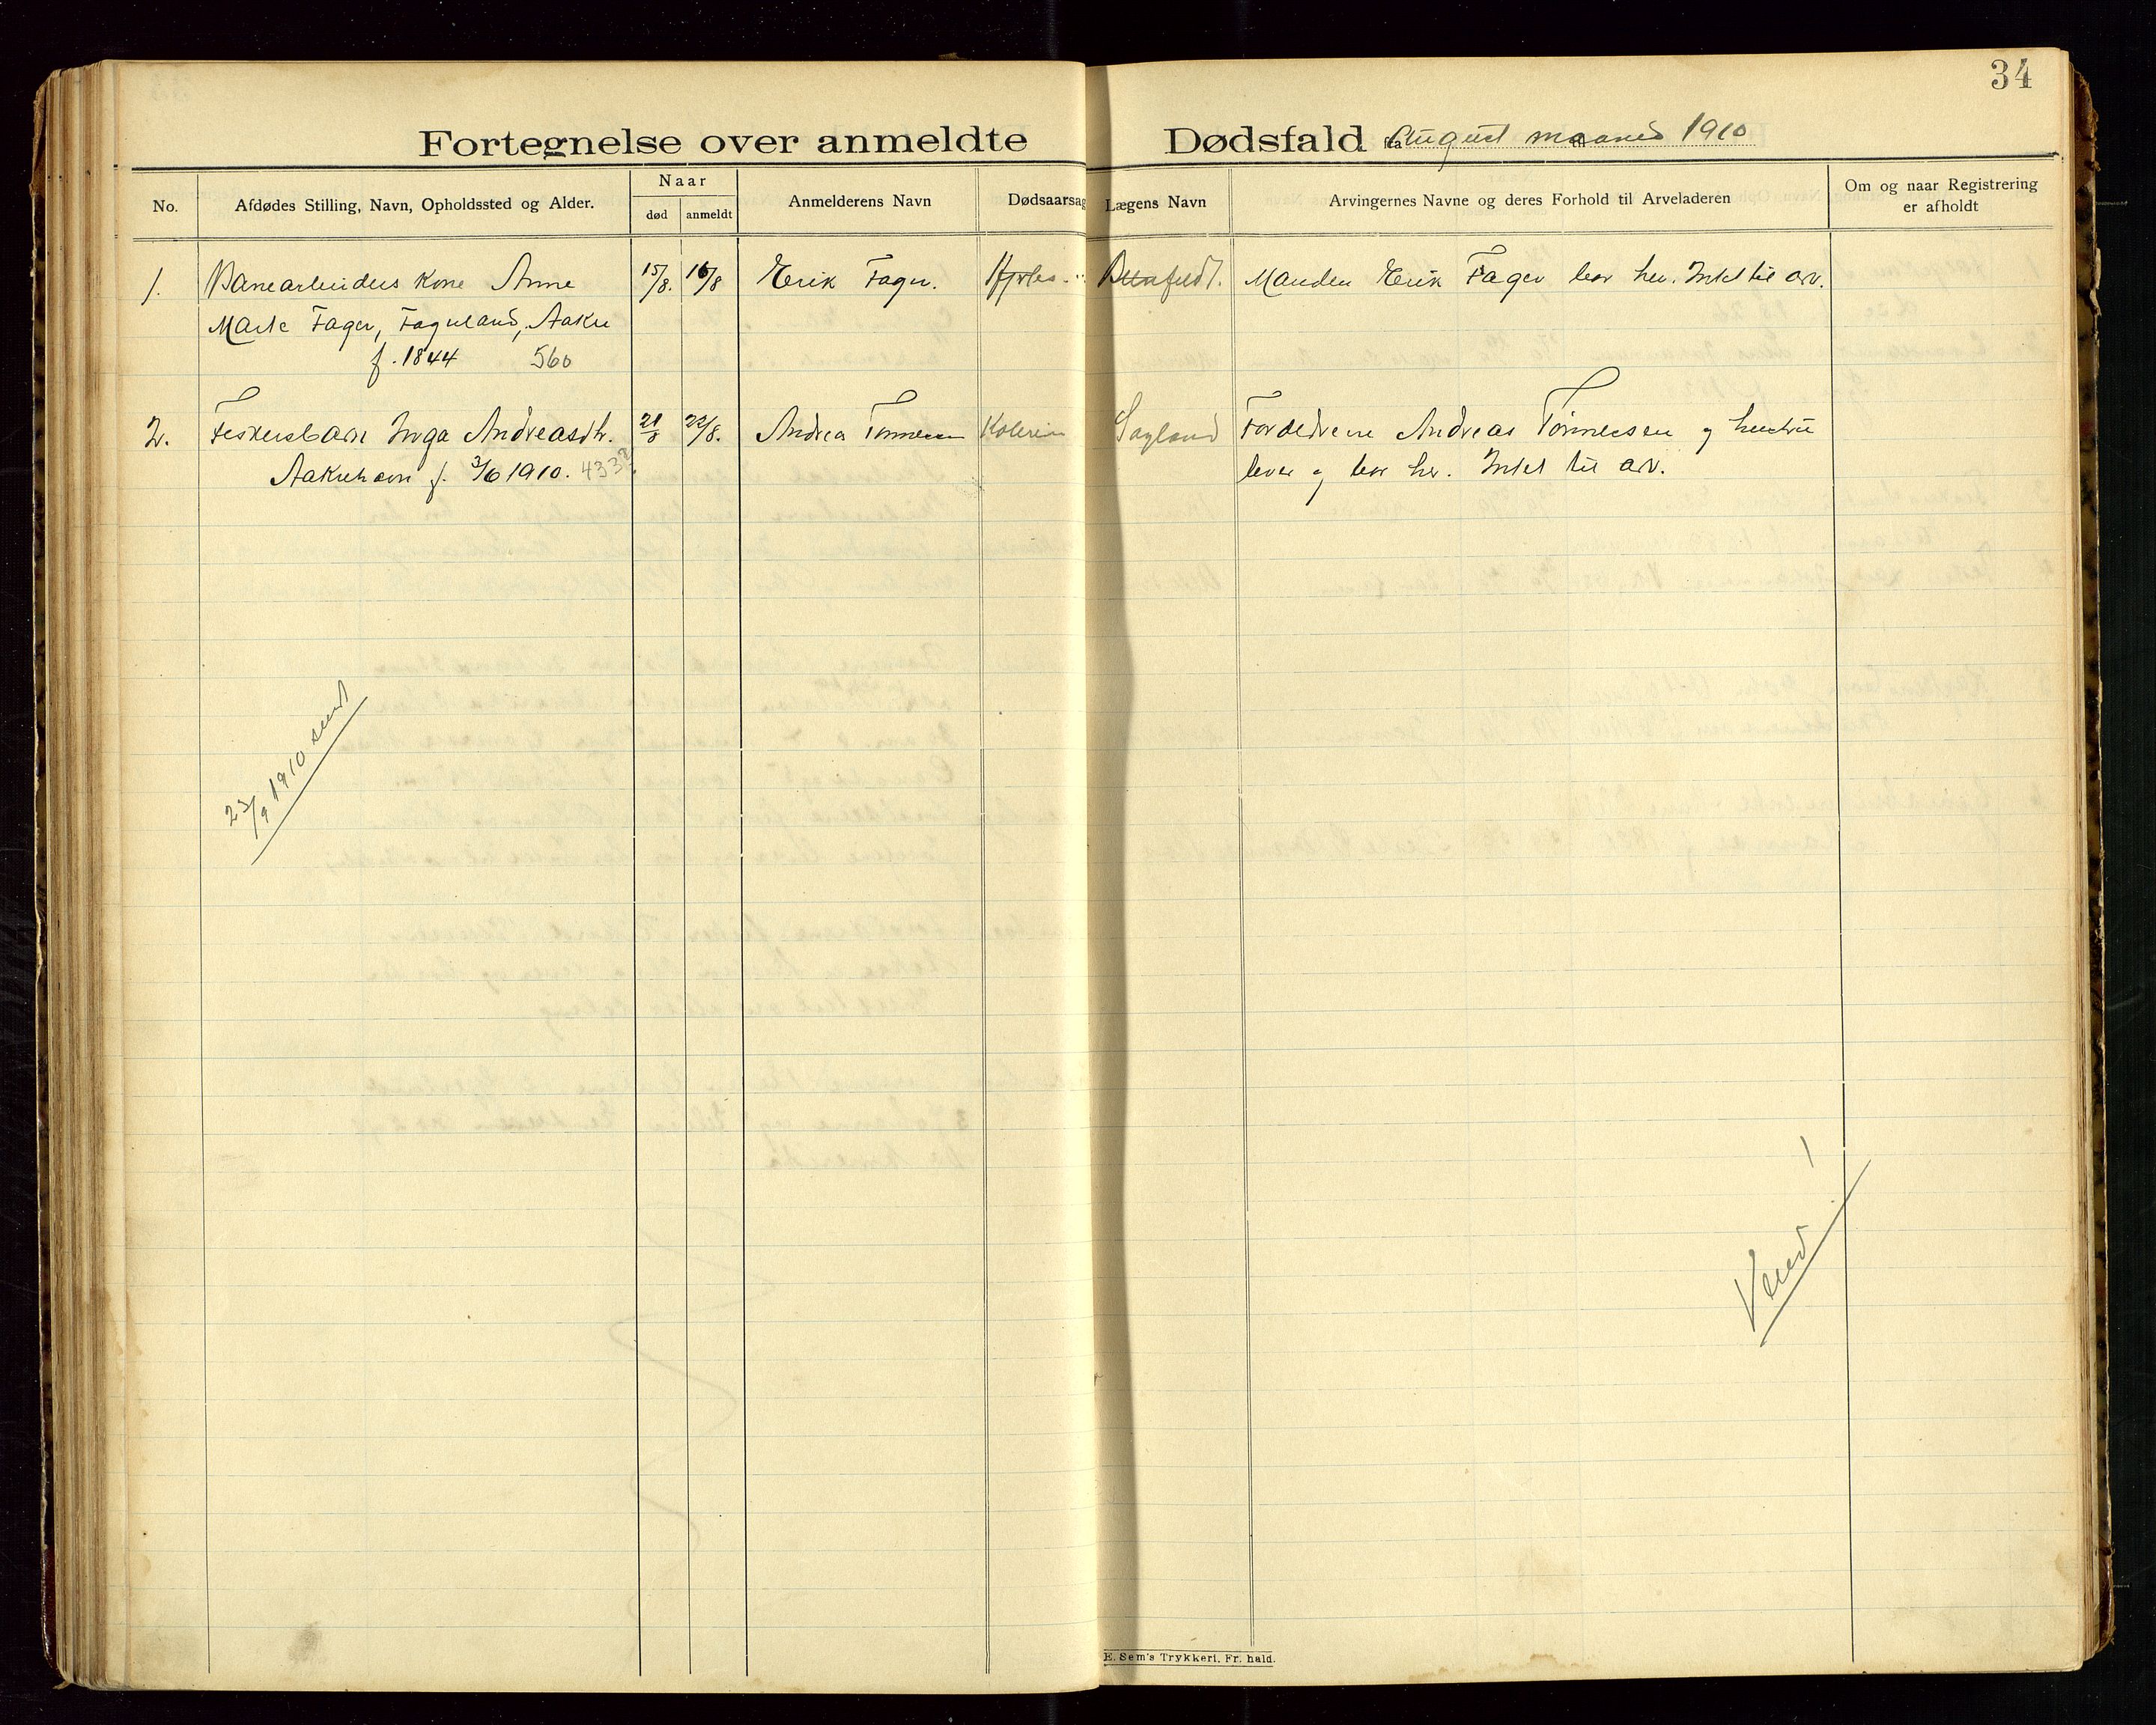 34
Fortegnelse over anmeldte Dødsfald August maaned 1910
No.
Afdødes Stilling, Navn, Opholdssted og Alder.
Naar
død
anmeldt
Anmelderens Navn
Dødsaarsag
Lægens Navn
Arvingernes Navne og deres Forhold til Arveladeren
Om og naar Registrering
er afholdt
1. Banearbeiders Kone Anne 15/8. 16/8 Erik Fager. Manden Erik Fager bor her. Intet til arv.
Marie Fager, Fagerland, Aakre
f. 1844 560
2. Feskersbarn Inga Andreasdtr. 21/8 22/8. Andrea Tønnesen Kolerin Sayland Forældrene Andreas Tønnessen og hustru
Aakrehavn f. 3/6 1910. 433 lever og bor her. Intet til arv.
23/9 1910 sendt
E. Sem's Trykkeri, Fr. hald.